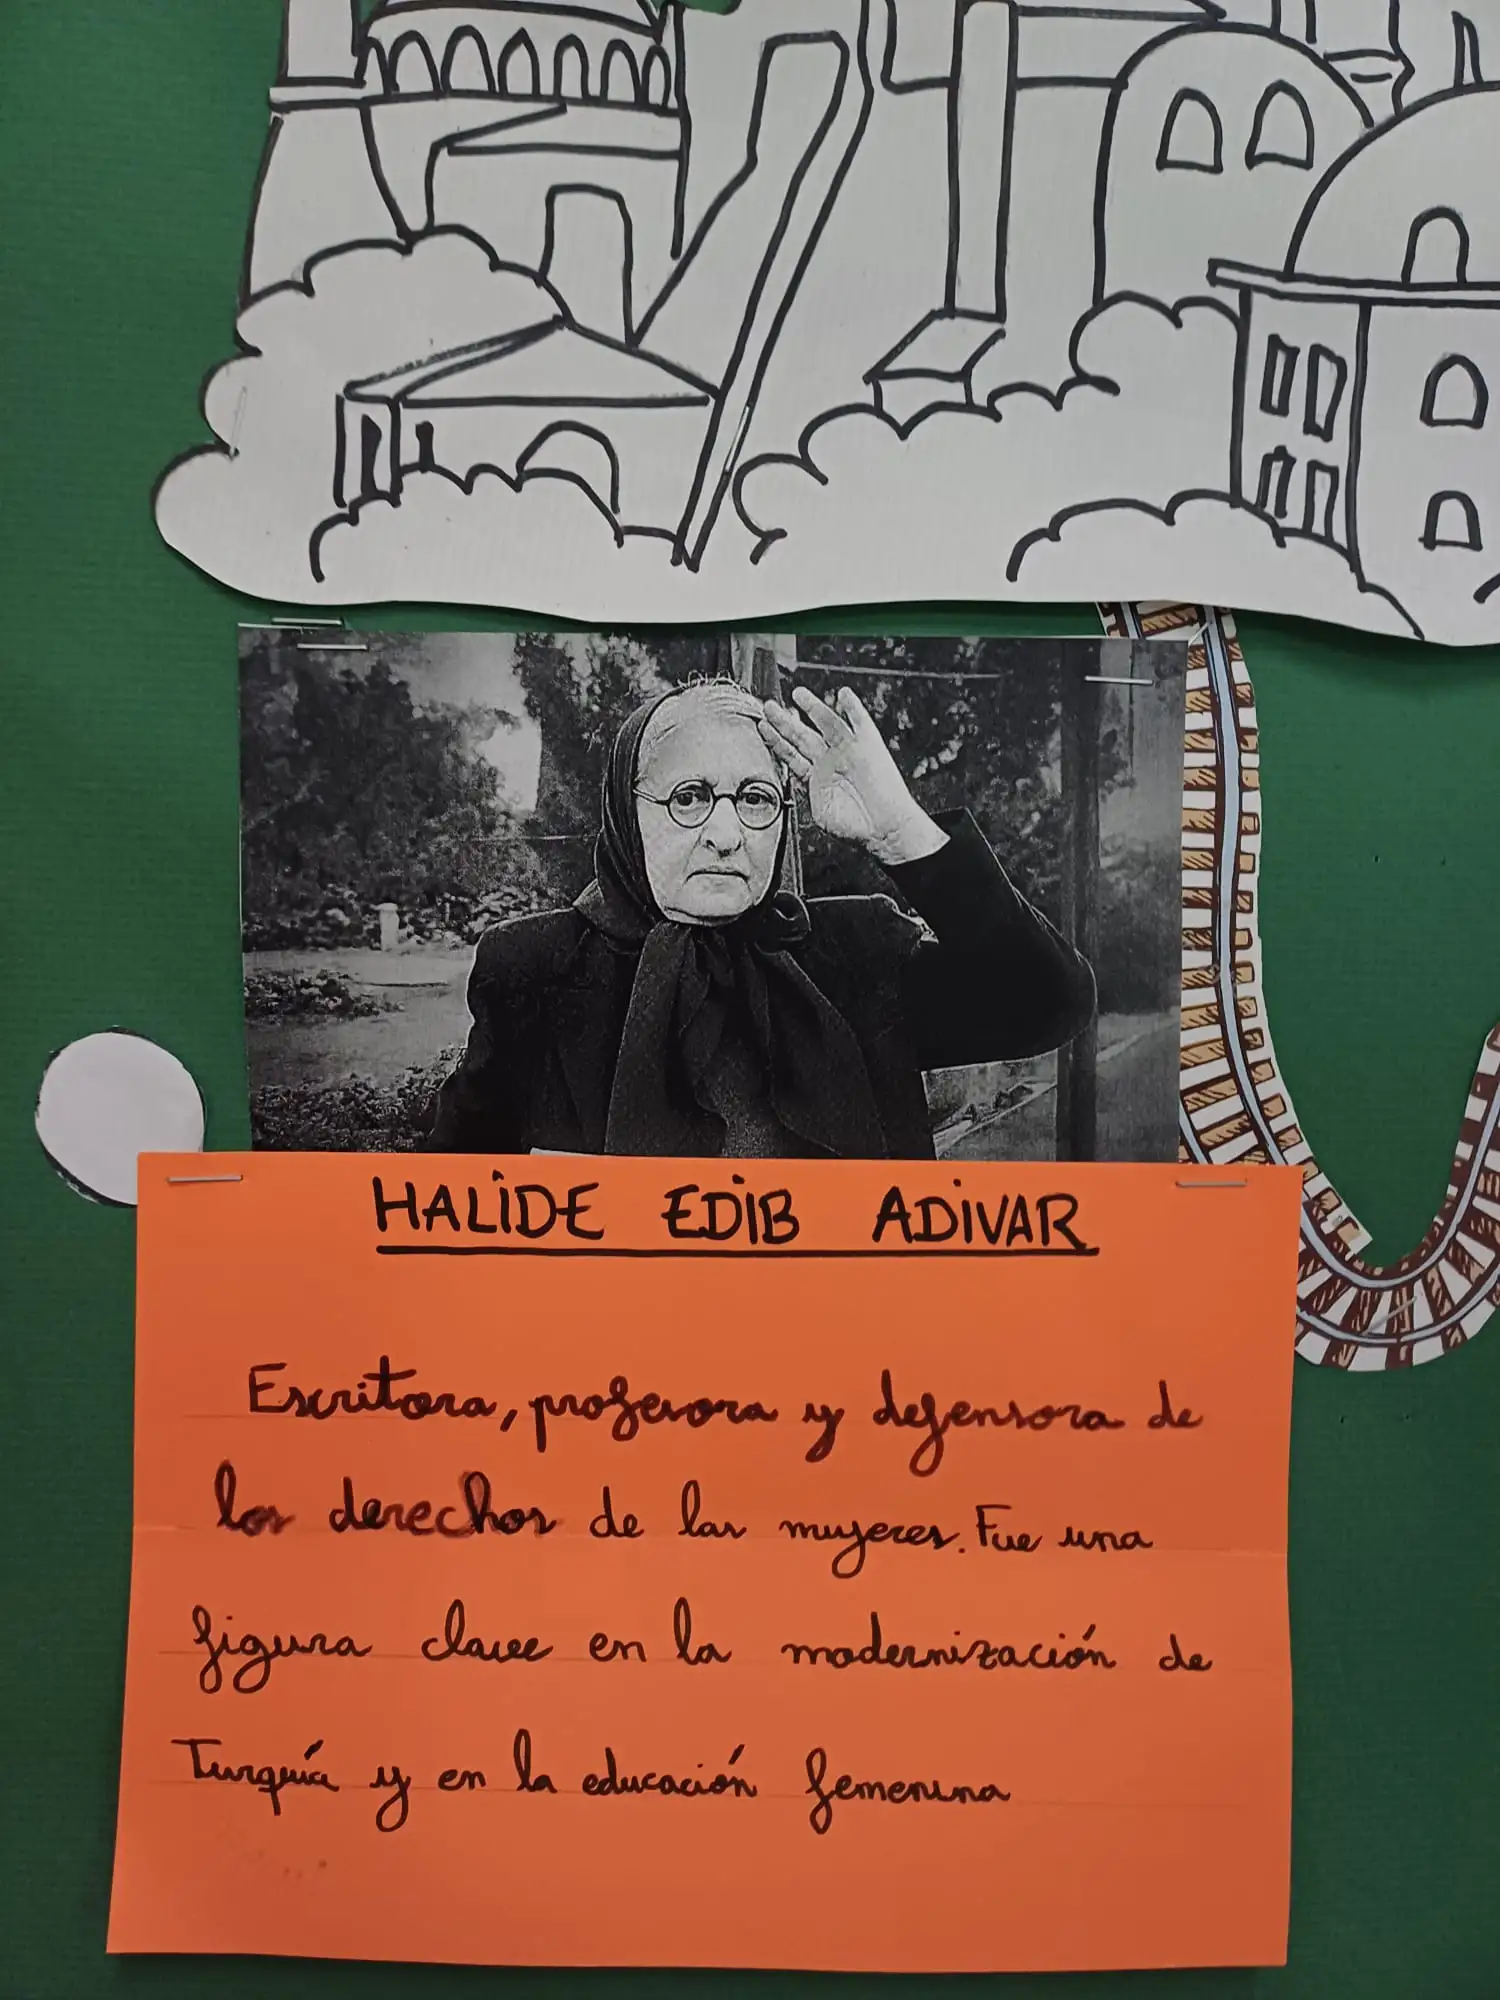 HALİDE EDİB ADİVAR
Escritora, profesora y defensora de
los derechos de las mujeres. Fue una
figura clave en la modernización de
Turquía y en la educación femenina